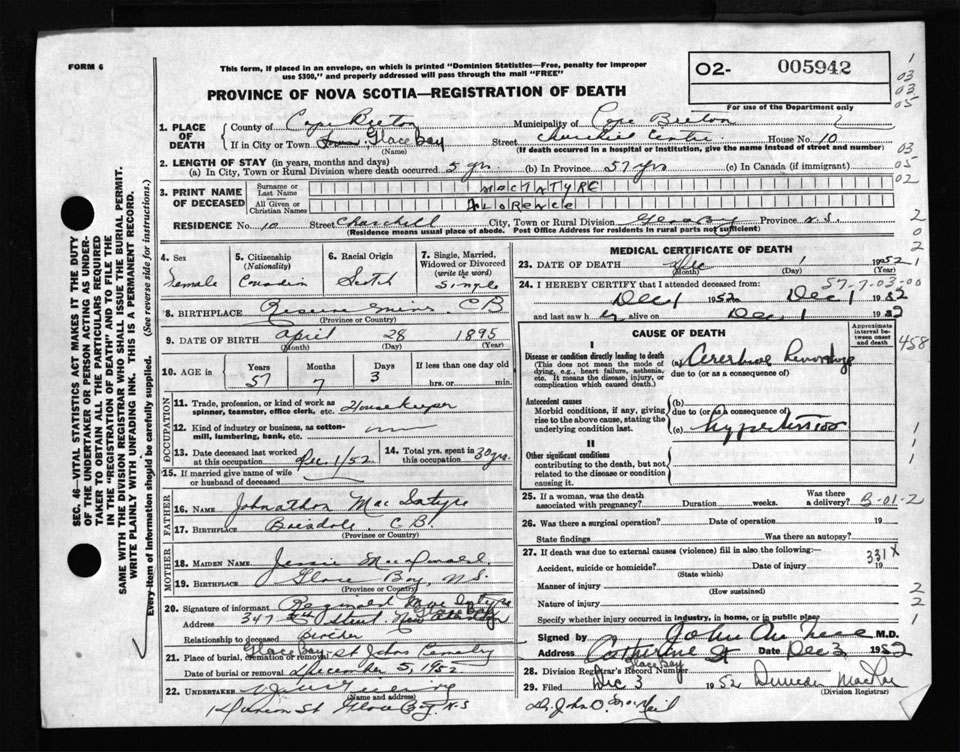 FORM 6
This form, if placed in an envelope, on which is printed "Dominion Statistics—Free, penalty for improper
use $300," and properly addressed will pass through the mail "FREE"
O2- 005942
PROVINCE OF NOVA SCOTIA—REGISTRATION OF DEATH
For use of the Department only
1
03
03
05
03
05
02
2
0
2
1
1. PLACE OF DEATH
County of Cape Breton Municipality of Cape Breton
If in City or Town Glace Bay Street House No. 10
(Name) (If death occurred in a hospital or institution, give the name instead of street and number)
2. LENGTH OF STAY (in years, months and days)
(a) In City, Town or Rural Division where death occurred 5 yrs (b) In Province 57 yrs (c) In Canada (if immigrant)
3. PRINT NAME OF DECEASED
Surname or Last Name MacIATYRE
All Given or Christian Names FLORENCE
RESIDENCE No. 10 Street Churchill City, Town or Rural Division Glace Bay Province N.S.
(Residence means usual place of abode. Post Office Address for residents in rural parts not sufficient)
4. Sex
Female
5. Citizenship
(Nationality)
Canadian
6. Racial Origin
Scotch
7. Single, Married, Widowed or Divorced
(write the word)
Single
8. BIRTHPLACE Reserve Mines C B
(Province or Country)
9. DATE OF BIRTH April 28 1895
(Month) (Day) (Year)
10. AGE in
Years Months Days If less than one day old
57 7 3 hrs. or min.
OCCUPATION
11. Trade, profession, or kind of work as
spinner, teamster, office clerk, etc. Housekeeper
12. Kind of industry or business, as cotton-
mill, lumbering, bank, etc.
13. Date deceased last worked
at this occupation Dec. 1/52
14. Total yrs. spent in
this occupation 30 yrs.
15. If married give name of wife
or husband of deceased
FATHER
16. Name Johnathon MacIntyre
17. Birthplace C B.
(Province or Country)
MOTHER
18. Maiden Name Jessie MacDonald
19. Birthplace Glace Bay, N.S.
(Province or Country)
20. Signature of informant Reginald MacIntyre
Address 347 Street. New
Glace Bay
Relationship to deceased Brother
21. Place of burial, cremation or removal Glace Bay St Johns
Date of burial or removal December 5, 1952
22. UNDERTAKER
(Name and address)
Union St Glace Bay N.S
MEDICAL CERTIFICATE OF DEATH
23. DATE OF DEATH Dec 1 1952
(Month) (Day) (Year)
57-7-03-00
24. I HEREBY CERTIFY that I attended deceased from:
Dec 1 1952 Dec 1 1952
and last saw h alive on Dec 1 1952
CAUSE OF DEATH
Approximate interval between onset and death
458
I
Disease or condition directly leading to death
(This does not mean the mode of
dying, e.g., heart failure, asthenia,
etc. It means the disease, injury, or
complication which caused death.)
(a) Cerebral Hemorrhage
due to (or as a consequence of)
Antecedent causes
Morbid conditions, if any, giving
rise to the above cause, stating the
underlying condition last.
(b)
due to (or as a consequence of)
(c) Hypertension
II
Other significant conditions
contributing to the death, but not
related to the disease or condition
causing it.
1
1
1
25. If a woman, was the death
associated with pregnancy? Duration weeks. Was there a delivery?
B-01-2
26. Was there a surgical operation? Date of operation 19
State findings Was there an autopsy?
27. If death was due to external causes (violence) fill in also the following:—
331X
Accident, suicide or homicide? Date 19
(State which)
Manner of injury
(How sustained)
Nature of injury
2
2
1
Specify whether injury occurred in industry, in home, or in public place
Signed by M.D.
Address Catherine St Date Dec 3 1952
Glace Bay
28. Division Registrar's Record Number
29. Filed Dec 3 1952 Duncan
(Division Registrar)
Dr. John O. MacNeil
SEC. 46—VITAL STATISTICS ACT MAKES IT THE DUTY
OF THE UNDERTAKER OR PERSON ACTING AS UNDER-
TAKER TO OBTAIN ALL THE PARTICULARS REQUIRED
IN THE "REGISTRATION OF DEATH" AND TO FILE THE
SAME WITH THE DIVISION REGISTRAR WHO SHALL ISSUE THE BURIAL PERMIT.
WRITE PLAINLY WITH UNFADING INK. THIS IS A PERMANENT RECORD.
Every item of information should be carefully supplied. (See reverse side for instructions.)